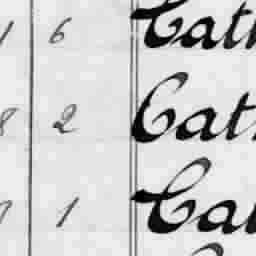 1 6 Cath
8 2 Cath
1 Cat